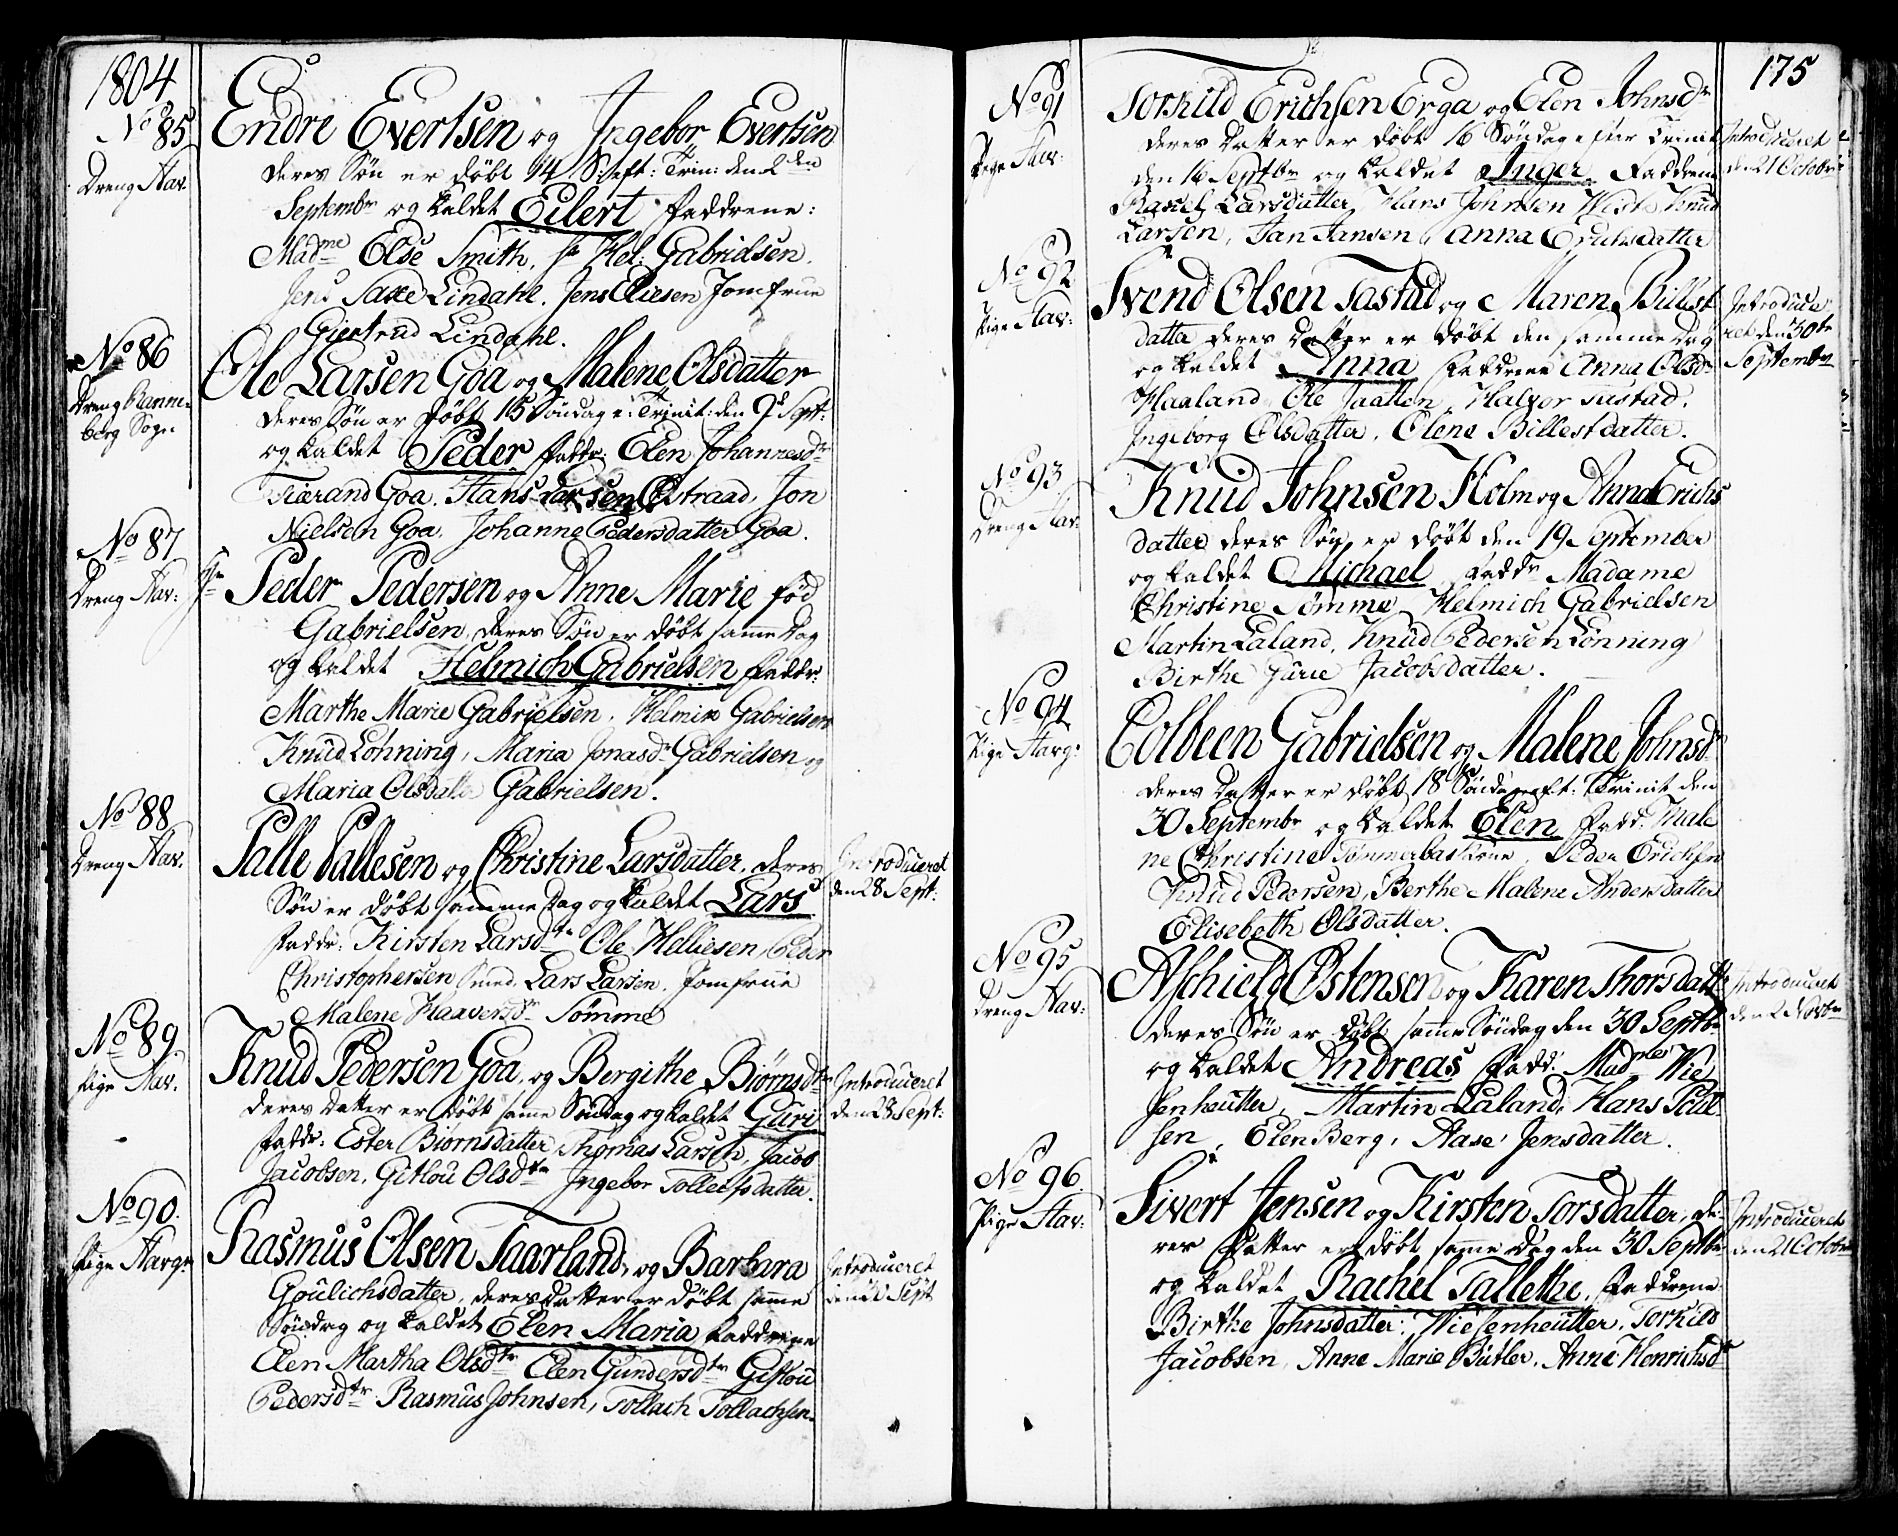 1804
No 85
Dreng Stav.
Endre Evertsen og Ingebor Evertsen
deres Søn er døbt 14 S: eft: Trin: den 2den
Septembr og kaldet Eilert Faddrene:
Madme Else Smith, Hr Hel: Gabrielsen,
Jens Saxe Lindahl. Jens Eliesen Jomfrue
Giertrud Lindahl.
No 86
Dreng Ranne-
berg Sogn
Ole Larsen Goa og Malene Olsdatter
deres Søn er døbt 15 Søndag e: Trinit: den 9d Sept:
og kaldet Peder Faddr: Elen Johannesdr
Tiærand Goa. Hans Larsen Østraad, Jon
Nielsen Goa. Johanne Pedersdatter Goa.
No 87
Dreng Stav:
Hr Peder Pedersen og Anne Marie fød
Gabrielsen, deres Søn er døbt samme Dag
og kaldet Helmich Gabrielsen Faddr:
Marthe Marie Gabrielsen, Helmik Gabrielsen
Knud Lønning, Maria Jonasdr Gabrielsen og
Maria Olsdatter Gabrielsen.
No 88
Dreng Stav.
Palle Pallesen og Christine Larsdatter, deres
Søn er døbt samme Dag og kaldet Lars
Faddr: Kirsten Larsdtr Ole Helliesen, Peder
Christophersen Smed, Lars Larsen, Jomfrue
Malene Haaversdr Sømme
Introduceret
den 28 Sept:
No 89
Pige Stav.
Knud Pedersen Goa, og Bergithe Biørnsdtr
deres Datter er døbt samme Søndag og kaldet Guri
Faddr: Ester Biørnsdatter, Thomas Larsen, Jacob
Jacobsen, Gitlou Olsdtr Ingebor Tollefsdatter.
Introduceret
den 28 Sept:
No 90.
Pige Stavgr
Rasmus Olsen Taarland, og Barbara
Goulichsdatter, deres Datter er døbt samme
Søndag og kaldet Elen Maria Faddrene
Elen Martha Olsdtr Elen Gundersdtr Gitlou
Pedersdtr Rasmus Johnsen, Tollach Tollachsen.
Introduceret
Sept
175
No 91
Pige Stav:
Torkild Erichsen Erga og Elen Johnsdr
deres Datter er døbt 16 Søndag efter Trinit
den 16 Septbr og kaldet Inger Faddrene
Rachel Larsdatter, Hans Johnsen Wiste Knud
Larsen, Jan Jansen, Anna Erichsdatter
Introduceret
den 21 Octobr
No 92
Pige Stav:
Svend Olsen Tastad og Maren Billest
datter deres Datter er døbt den samme Dag
og kaldet Anna Faddrene Anna Olsdr
Haaland, Ole Jaatten, Halvor Tustad,
Ingeborg Olsdatter, Olene Billestdatter.
Introduce
ret den 30te
Septembr
No 93
Dreng Stav:
Knud Johnsen Holm og Anna Erichs
datter deres Søn er døbt den 19 September
og kaldet Michael Faddr Madame
Christine Sømme, Helmich Gabrielsen
Martin Laland, Knud Pedersen Lønning
Birthe Jacobsdatter.
No 94
Pige Stavgr
Colbeen Gabrielsen og Malene Johnsdr
deres Datter er døbt 18 Søndag eft: Trinit den
30 Septembr og kaldet Elen Fadd. Male
ne Christine Peder Erichsen
Knud Pedersen, Berthe Malene Andersdatter
Elisebeth Olsdatter.
No 95
Dreng Stav:
Aschield Østensen og Karen Thorsdatter
deres Søn er døbt samme Søndag den 30 Septbr
og kaldet Andreas Fadd: Madmes Wie
senheutter, Martin Laland, Hans Poul
sen, Elen Berg, Aase Jensdatter.
Introduceret
den 2 Novbr
No 96.
Pige Stav:
Sivert Jensen og Kirsten Torsdatter, de-
res Datter er døbt samme Dag den 30 Septbr
og kaldet Rachel Tallethe, Faddrene
Birthe Johnsdatter, Wiesenheutter, Torkild
Jacobsen, Anne Marie Butler, Anne Henrichsdr
Introduceret
den 21 Octobr